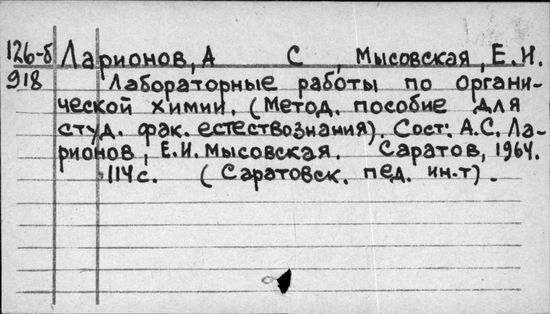 126-б Ларионов, А С , Мысовская, Е.И.
918 Лабораторные работы по органи-
ческой химии. (Метод. пособие для
студ. фак. естествознания). Сост. А.С. Ла-
рионов, Е.И. Мысовская. Саратов, 1964.
114 с. (Саратовск. пед. ин-т).